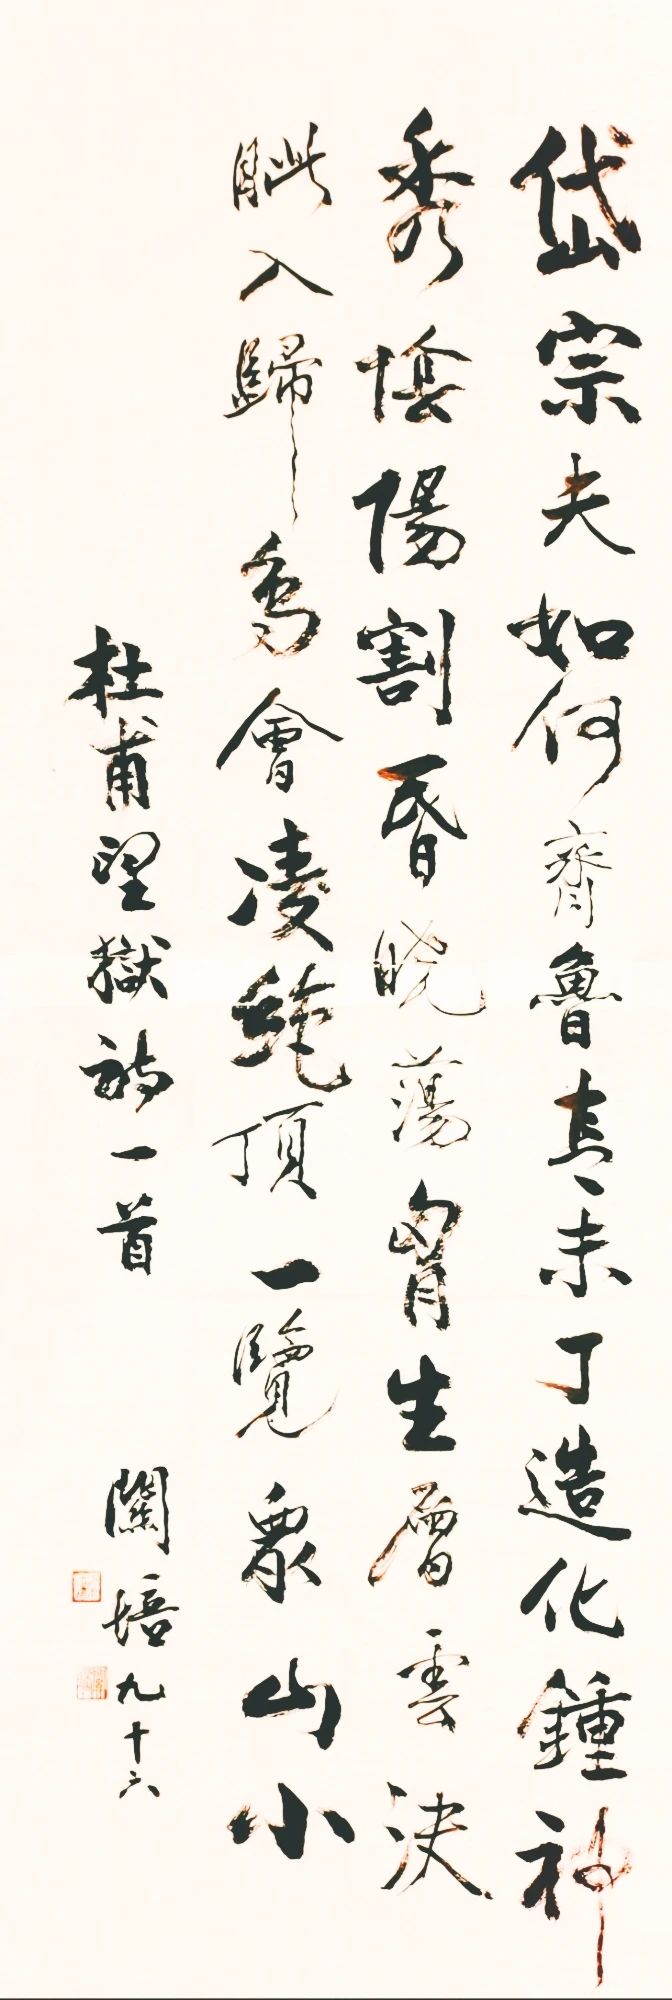 岱宗夫如何齊魯青未了造化鍾神
秀陰陽割昏曉蕩胷生層雲決
眦入歸鳥會凌絶頂一覽眾山小
杜甫望嶽詩一首
關培九十六